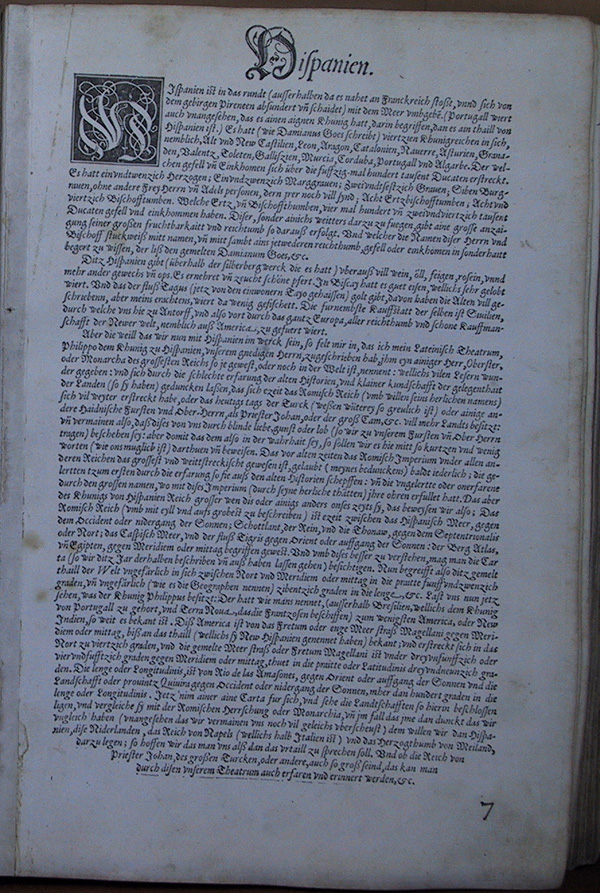 Hispanien.
Ispanien ist in das rundt (ausserhalben da es nahet an Franckreich stosst, vnnd sich von
dem gebirgen Pireneen absundert vñ schaidet) mit dem Meer vmhgebē. (Portugall wiert
auch vnangesehen, das es ainen aignen Khunig hatt, darin begriffen, dan es am thaill von
Hispanien ist.) Es hatt (wie Damianus Goes schreibt) viertzien Khunigreichen in sich,
nemblich, Alt vnd New Castilien, Leon, Aragon, Catalonien, Nauerre, Asturien, Grana-
den, Valentz, Toleten, Galliszien, Murcia, Corduba, Portugall vnd Algarbe. Der wel-
chen gefell vñ Einkhomen sich über die fuffzig-mal hundert tausent Ducaten erstreckt.
Es hatt einvndtwenzich Herzogen; Einvndzwenzich Marggrauen; Zweivndsesszich Grauen; Siben Burg-
rauen, ohne andere Frey Herrn vñ Adels personen, dern per noch vill synd; Acht Ertzbischofftumben; Acht vnd
viertzich Bischofftumben. Welche Ertz, vñ Bischoffthumben, vier mal hundert vñ zweivndviertzich tausent
Ducaten gefell vnd einkhommen haben. Diser, sonder ainichs weitters darzu zu fuegen, gibt aine grosse anzai-
gung seiner großen fruchtbarkaitt vnd reichtumb so darauß erfolgt. Vnd welcher die Namen diser Herrn vnd
Bischoff stuckweiß mitt namen, vñ mitt sambt ains jetwederen reichthumb, gefell oder einkhomen in sonderhaitt
begert zu wissen, der leß den gemelten Damianum Goes, &c.
Ditz Hispanien gibt (überhalb der silberbergwerck die es hatt) vberauß vill wein, öll, feigen, rosein, vnnd
mehr ander gewechs vñ ops. Es ernehret vñ zeucht schöne pfert. In Biscay hatt es guet eisen, wellichs sehr gelobt
wiert. Vnd das der fluß Tagus (jetz von den einwonern Tayo gehaissen) golt gibt, davon haben die Alten vill ge-
schriebenn, aber meins erachtens, wiert da wenig gefischett. Die furnembste Kauffstatt der selben ist Seuilien,
durch welche vns hie zu Antorff, vnd also vort durch das gantz Europa, aller reichthumb vnd schone Kauffman-
schafft der Newer welt, nemblich auß America, zu gefuert wiert.
Aber die weill das wir nun mitt Hispanien im werck sein, so felt mir in, das ich mein Lateinisch Theatrum,
Philippo dem Khunig zu Hispanien, vnserem gnedigen Herrn, zugeschrieben hab, ihm eyn ainiger Herr, Oberster,
oder Monarcha des grossesten Reichs so je gewest, oder noch in der Welt ist, nennent: wellichs vilen Lesern wun-
der gegeben: vnd sich durch die schlechte erfarung der alten Historien, vnd klainer kundschafft der gelegenthait
der Landen (so sy haben) geduncken laßen, das sich ezeit das Romisch Reich (vmb willen seins herlichen namens)
sich vil weyter erstreckt habe, oder das heutigs tags der Turck (weßen wüterey so greulich ist) oder ainige an-
dere Haidnische Fursten vnd Ober-Herrn, als Priester Johan, oder der groß Cam, &c. vill mehr Landts besitzt:
vñ vermainen also, daß dises von vns durch blinde liebe, gunst oder lob (so wir zu vnserem Fursten vñ Ober Herrn
tragen) beschehen sey: aber domit das dem also in der wahrhait sey, so söllen wir es hie mitt so kurtzen vnd wenig
worten (wie ons muglich ist) darthuen vñ beweisen. Das vor alten zeiten das Romisch Imperium vnder allen an-
deren Reichen das grossest vnd weittstreckichste gewesen ist, gelaubt (meynes beduncktens) baldt iederlich; die ge-
lertten tzum ersten durch die erfarung so sie auß den alten Historien schepffen: vñ die vngelerte oder onerfarene
durch den grossen namen, wo mit dises Imperium (durch seyne herliche thätten) jhre ohren erfullet hatt. Das aber
des Khunigs von Hispanien Reich grosser wen dis oder ainigs anders onses zeyts sy, das beweysen wir also; Das
Romisch Reich (vmb mitt eyll vnd auffs grobest zu beschreiben) ist ezeit zwischen das Hispanisch Meer, gegen
dem Occident oder nidergang der Sonnen; Schottlant, der Rein, vnd die Thonaw, gegen dem Septentrionalis
oder Nort; das Caspisch Meer, vnd der fluß Tigris gegen Orient oder auffgang der Sonnen: der Berg Atlas,
vñ Egipten, gegen Meridiem oder mittag begriffen gewest. Vnd vmb dises besser zu verstehen, mag man die Car-
ta (so wir ditz Iar derhalben beschriben vñ auß haben lassen gehen) besichtigen. Nun begreifft also ditz gemelt
thaill der Welt vngefärlich in sich zwischen Nort vnd Merdiem oder mittag in die praitte funffvndzwenzich
graden, vñ vngefärlich (wie es die Geographen nennen) zibentzich graden in die lenge, &c. Last vns nun jetz
sehen, was der Khunig Philippus besitzt: Der hatt wie mans nennet, (ausserhalb Bresilien, wellichs dem Khunig
von Portugall zu gehort, vnd Terra Noua, das die Frantzosen beschiffen) zum wenigsten America, oder New
Indien, so weit es bekant ist. Diß America ist von das Fretum oder enge Meer straß Magellani gegen Meri-
diem oder mittag, biß an das thaill (wellichs sy New Hispanien genennet haben) bekant; vnd erstreckt sich in das
Nort zu viertzich graden, vnd die gemelte Meer straß oder Fretum Magellani ist vnder dreyvnfunffzich oder
viervndfufftzich graden gegen Meridiem oder mittag, thuet in die praitte oder Latitudinis dreyvndneunzich gra-
den. Die lenge oder Longitudinis, ist von Rio de las Amasones, gegen Orient oder auffgang der Sonnen vnd die
Landschafft oder prouintz Quiuira gegen Occident oder nidergang der Sonnen, mher dan hundert graden in die
lenge oder Longitudinis. Jetz nim ainer aine Carta fur sich, vnd sehe die Landschafften so hierin beschlossen
ligen, vnd vergleiche sy mit der Romischen Herrschung oder Monarchia, vñ jm fall das jme dan dunckt das wir
vngleich haben (vnangesehen das wir vermainen vns noch vil geleichs vberscheust) dem willen wir dan Hispa-
nien, dise Niderlanden, das Reich von Napels (wellichs halb Italien ist) vnd das Herzogthumb von Meiland,
darzu legen; so hoffen wir das man vns alß dan das vrtaill zu sprechen soll. Vnd ob die Reich von
Priester Johan, des großen Turcken, oder andere, auch so groß seind, das kan man
durch disen vnserem Theatrum auch erfaren vnd erinnert werden, &c.
7